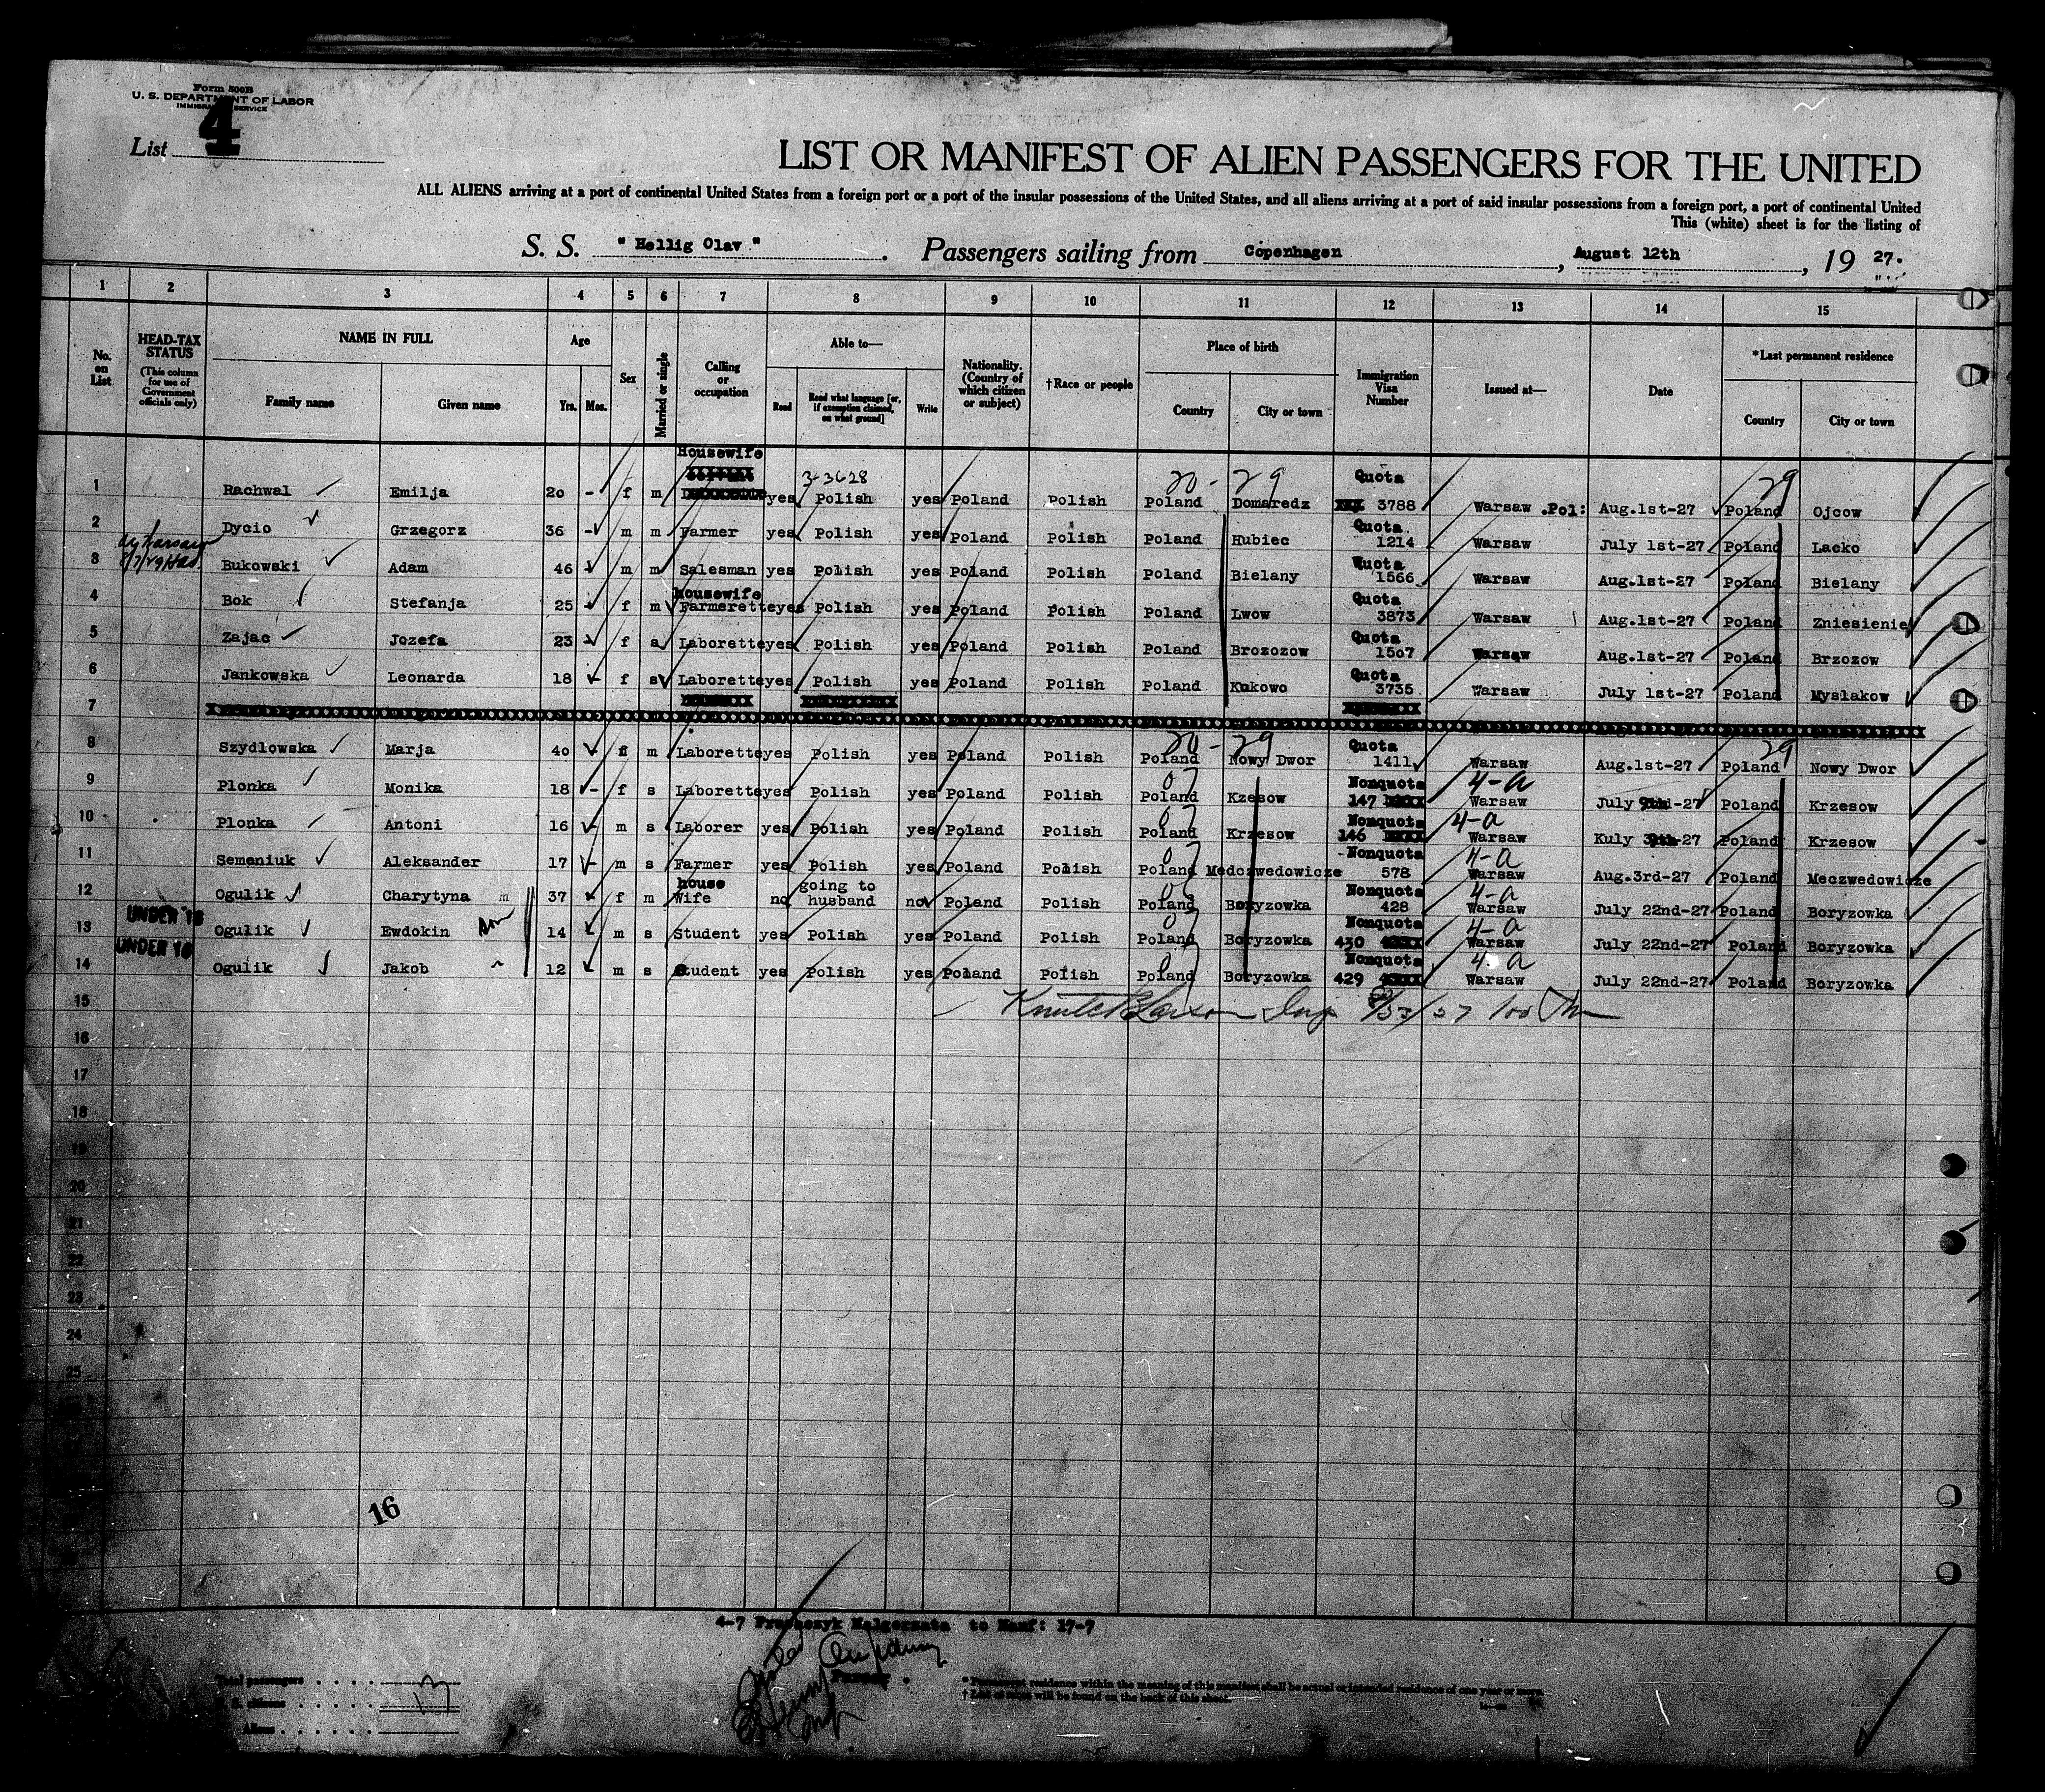 Form 500B
U. S. DEPARTMENT OF LABOR
IMMIGRATION SERVICE
List 4
LIST OR MANIFEST OF ALIEN PASSENGERS FOR THE UNITED
ALL ALIENS arriving at a port of continental United States from a foreign port or a port of the insular possessions of the United States, and all aliens arriving at a port of said insular possessions from a foreign port, a port of continental United
This (white) sheet is for the listing of
S. S. "Hellig Olav". Passengers sailing from Copenhagen, August 12th, 19 27.
1 2 3 4 5 6 7 8 9 10 11 12 13 14 15
No. on List
HEAD-TAX STATUS (This column for use of Government officials only)
NAME IN FULL
Family name Given name
Age
Yrs. Mos.
Sex
Married or single
Calling or occupation
Able to—
Read Read what language [or, if exemption claimed, on what ground] Write
Nationality. (Country of which citizen or subject)
†Race or people
Place of birth
Country City or town
Immigration Visa Number
Issued at—
Date
*Last permanent residence
Country City or town
Housewife
3-3628 20 - 29 Quota 29
1 Rachwal Emilja 20 - f m yes Polish yes Poland Polish Poland Domaredz 3788 Warsaw .Pol: Aug.1st-27 Poland Ojcow
Quota
2 Dycio Grzegorz 36 - m m Farmer yes Polish yes Poland Polish Poland Hubiec 1214 Warsaw July 1st-27 Poland Lacko
Quota
3 Bukowski Adam 46 - m m Salesman yes Polish yes Poland Polish Poland Bielany 1566 Warsaw Aug.1st-27 Poland Bielany
housewife Quota
4 Bok Stefanja 25 - f m Farmerette yes Polish yes Poland Polish Poland Lwow 3873 Warsaw Aug.1st-27 Poland Zniesienie
Quota
5 Zajac Jozefa 23 - f s Laborette yes Polish yes Poland Polish Poland Brozozow 1507 Warsaw Aug.1st-27 Poland Brzozow
Quota
6 Jankowska Leonarda 18 - f s Laborette yes Polish yes Poland Polish Poland Kukowo 3735 Warsaw July 1st-27 Poland Myslakow
7
20 - 29 Quota 29
8 Szydlowska Marja 40 - f m Laborette yes Polish yes Poland Polish Poland Nowy Dwor 1411 Warsaw Aug.1st-27 Poland Nowy Dwor
Nonquota 4-a
9 Plonka Monika 18 - f s Laborette yes Polish yes Poland Polish Poland Kzesow 147 Warsaw July 9th-27 Poland Krzesow
Nonquota 4-a
10 Plonka Antoni 16 - m s Laborer yes Polish yes Poland Polish Poland Krzesow 146 Warsaw Kuly 9th-27 Poland Krzesow
Nonquota 4-a
11 Semeniuk Aleksander 17 - m s Farmer yes Polish yes Poland Polish Poland Medczwedowicze 578 Warsaw Aug.3rd-27 Poland Meczwedowicze
house going to Nonquota 4-a
12 Ogulik Charytyna m 37 - f m Wife no husband no Poland Polish Poland Boryzowka 428 Warsaw July 22nd-27 Poland Boryzowka
UNDER 16 Nonquota 4-a
13 Ogulik Ewdokin 14 m s Student yes Polish yes Poland Polish Poland Boryzowka 430 Warsaw July 22nd-27 Poland Boryzowka
UNDER 16 Nonquota 4-a
14 Ogulik Jakob 12 m s Student yes Polish yes Poland Polish Poland Boryzowka 429 Warsaw July 22nd-27 Poland Boryzowka
15
16
17
18
19
20
21
22
23
24
25
16
4-7 Malgorzata to Manf: 17-7
Total passengers 13
U. S. citizens
Aliens
* Permanent residence within the meaning of this manifest shall be actual or intended residence of one year or more.
† List of races will be found on the back of this sheet.